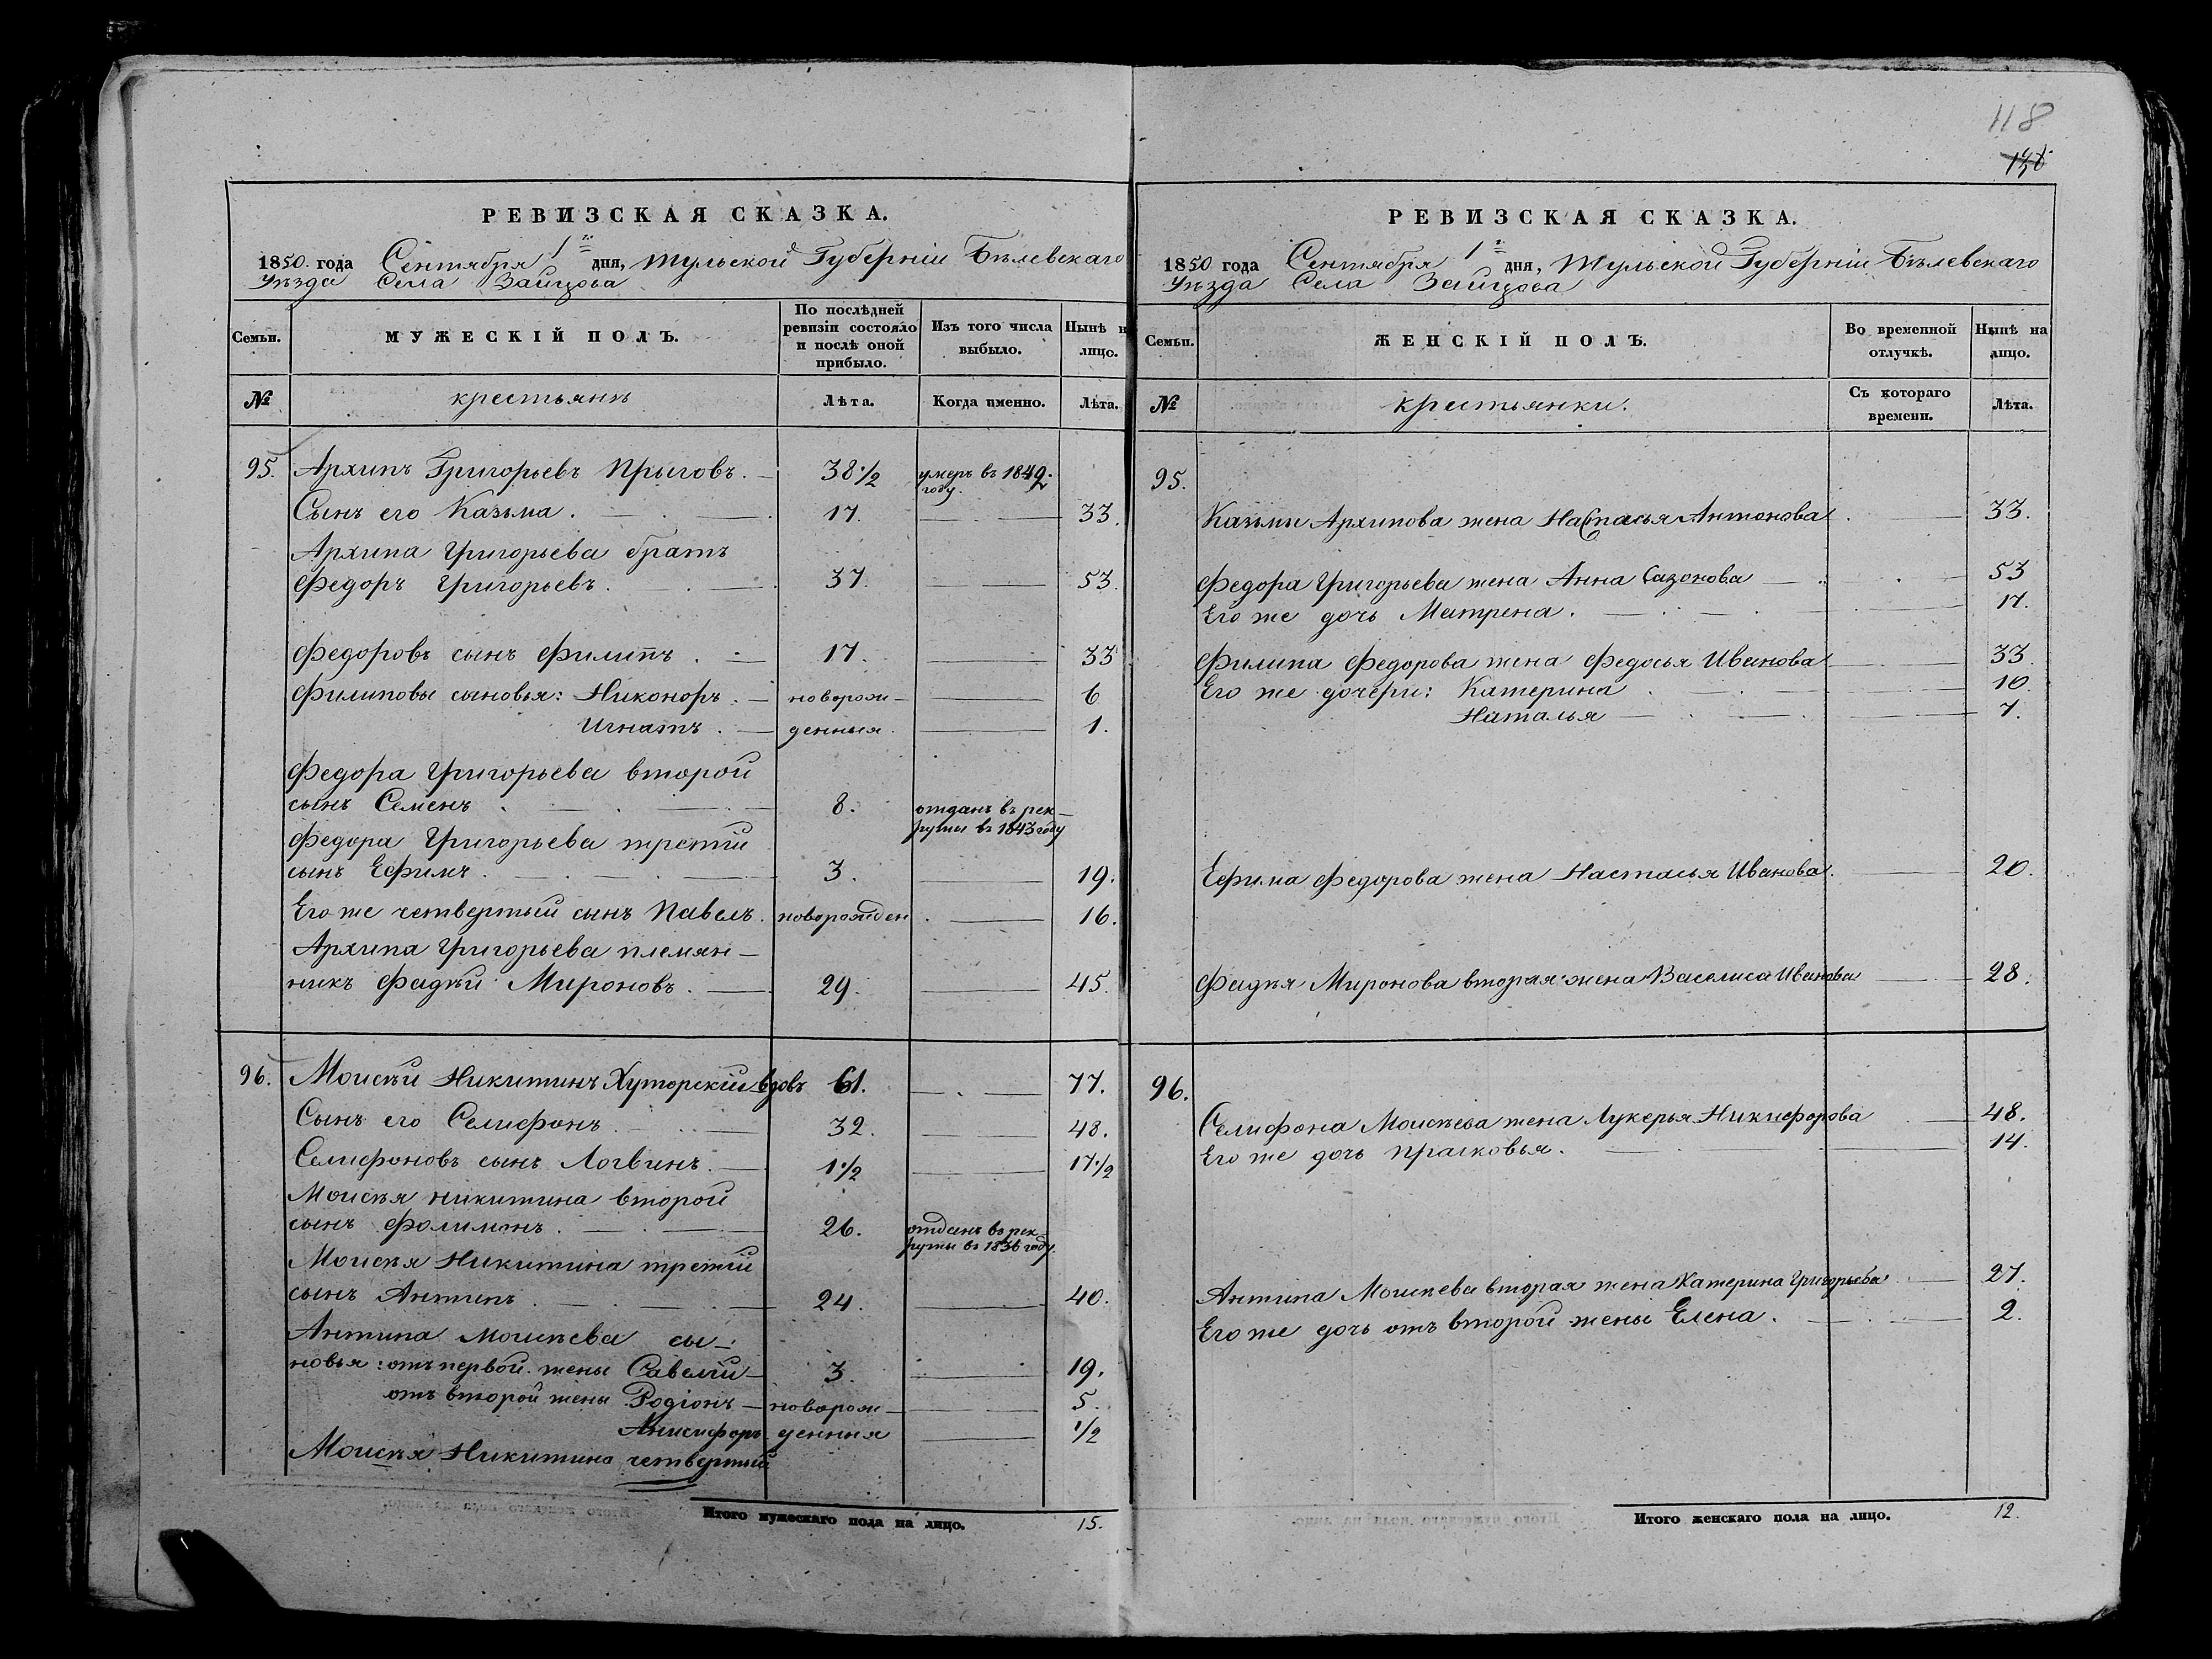 118
РЕВИЗСКАЯ СКАЗКА.
1850. года Сентября 1го дня, Тульской Губерніи Бѣлевскаго
Уѣзда Села Зайцова
Семьи. МУЖЕСКІЙ ПОЛЪ. По послѣдней ревизіи состояло и послѣ оной прибыло. Изъ того числа выбыло. Нынѣ на лицо.
№ крестьянъ Лѣта. Когда именно. Лѣта.
95. Архипъ Григорьевъ Прыговъ. 38 1/2 умеръ въ 1849 году.
Сынъ его Казьма. 17. 33.
Архипа Григорьева братъ
Федоръ Григорьевъ. 37. 53.
Федоровъ сынъ Филипъ. 17. 33
Филиповы сыновья: Никоноръ. новорож- 6
Игнатъ. денныя. 1.
Федора Григорьева второй
сынъ Семенъ. 8. отданъ въ рек-
руты въ 1843 году
Федора Григорьева третій
сынъ Ефимъ. 3. 19.
Его же четвертый сынъ Павелъ. новорожден. 16.
Архипа Григорьева племян-
никъ Фадѣй Мироновъ. 29. 45.
96. Моисѣй Никитинъ Хуторскій вдовъ 61. 77.
Сынъ его Селифонъ. 32. 48.
Селифоновъ сынъ Логвинъ. 1 1/2 17 1/2
Моисѣя никитина второй
сынъ Фолимонъ. 26. отданъ въ рек-
руты въ 1836 году.
Моисѣя Никитина третій
сынъ Антипъ. 24. 40.
Антипа Моисѣева сы-
новья: отъ первой жены Савелій 3. 19.
отъ второй жены Родіонъ новорож- 5.
Анисифоръ денныя 1/2
Моисѣя Никитина четвертый
Итого мужескаго пола на лицо. 15.
РЕВИЗСКАЯ СКАЗКА.
1850 года Сентября 1го дня, Тульской Губерніи Бѣлевскаго
Уѣзда Села Зайцова
Семьи. ЖЕНСКІЙ ПОЛЪ. Во временной отлучкѣ. Нынѣ на лицо.
№ крестьянки. Съ котораго времени. Лѣта.
95.
Казьмы Архипова жена Настасья Антонова 33.
Федора Григорьева жена Анна Сазонова 53
Его же дочь Матрена. 17.
Филипа Федорова жена Федосья Иванова 33.
Его же дочери: Катерина 10.
Наталья 7.
Ефима Федорова жена Настасья Иванова. 20.
Фадѣя Миронова вторая жена Василиса Иванова 28.
96.
Селифона Моисѣева жена Лукерья Никифорова 48.
Его же дочь Прасковья. 14.
Антипа Моисѣева вторая жена Катерина Григорьева 27.
Его же дочь отъ второй жены Елена. 2.
Итого женскаго пола на лицо. 12.